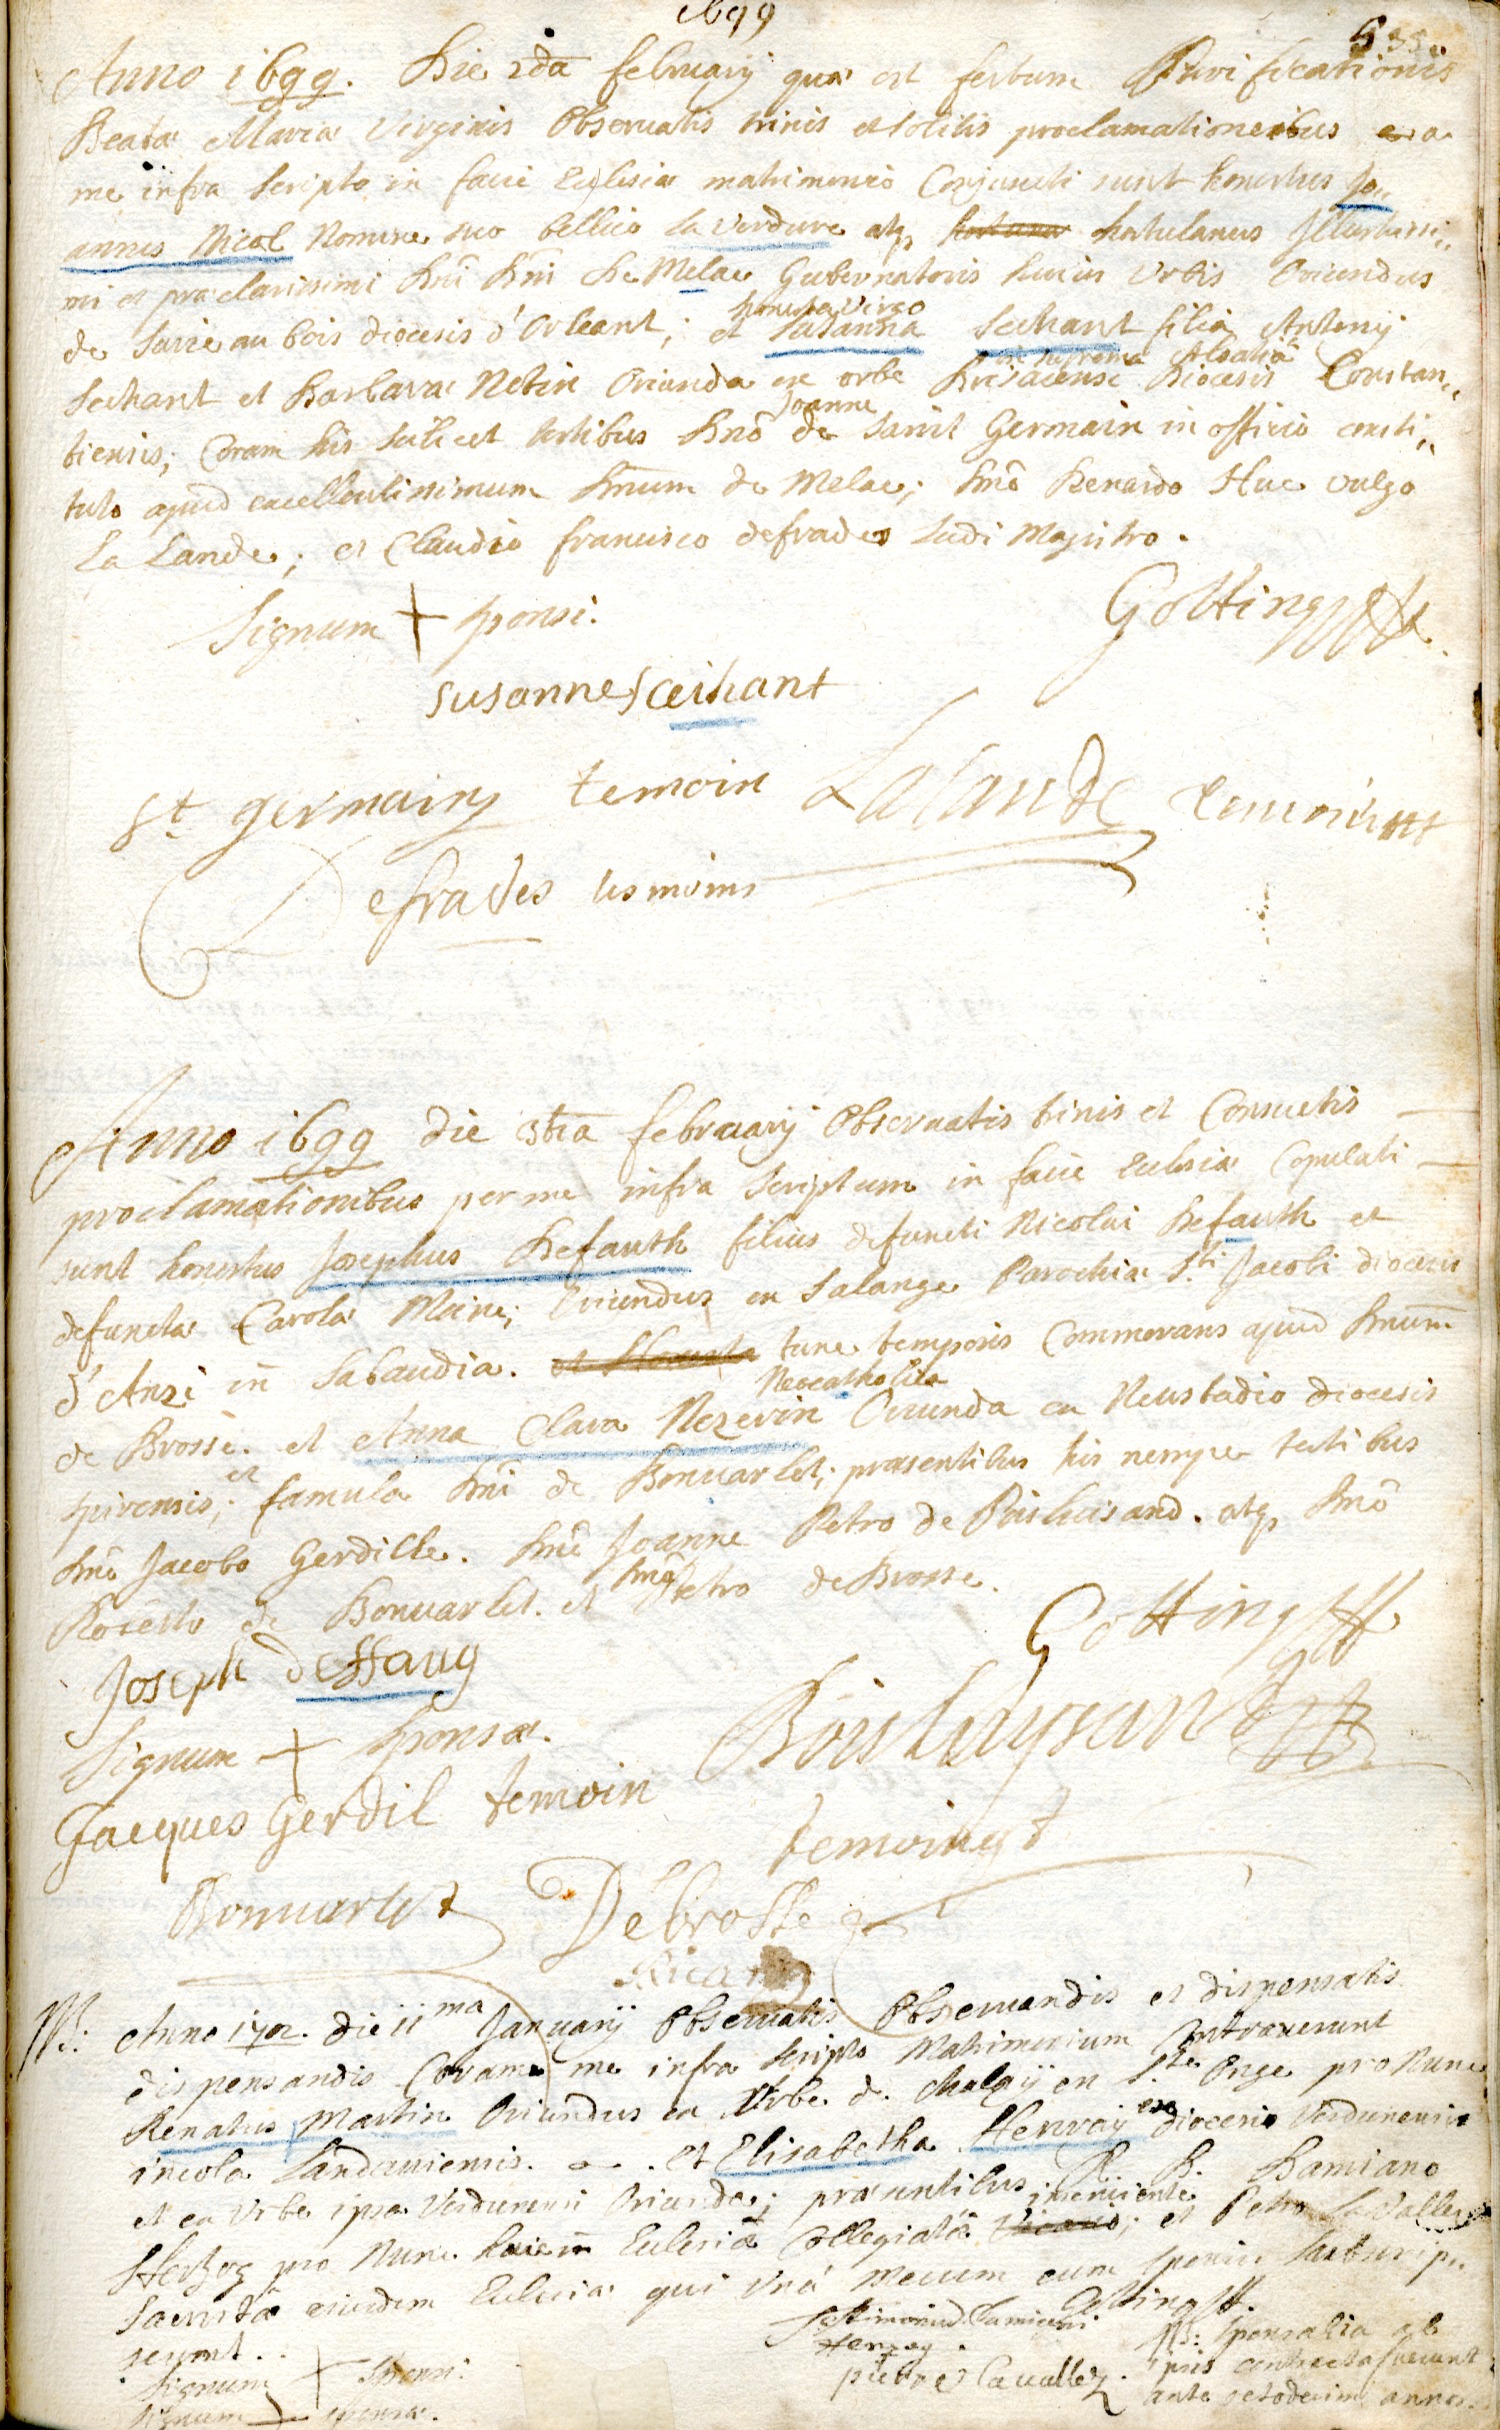 1699
Anno 1699. Die 2da februarij qua est festum Purificationis
Beatæ Mariæ Virginis Observatis trinis et solitis proclamationibus a
me infra scripto in facie Ecclesiæ matrimonio Conjuncti sunt honestus Jo,,
annes Nicol Nomine suo bellico la Verdure atq, Illustrissi,,
mi et præclarissimi Dni Dni de Melac Gubernatoris hujus Urbis Oriundus
de Surie au bois diocesis d'Orleant; et honesta Virgo Susanna Sechant filia Antonij
Sechant et Barbaræ Nebin Oriunda ex Urbe Brisacensi in superiori Alsatia Diocesis Constan,,
tiensis; Coram his scilicet testibus Dno Joanne de Saint Germain in officio consti,,
tuto apud excellentissimum Dnum de Melac; Dno Renardo Huc vulgo
La Lande; et Claudio francisco defrades Ludi Magistro.
Signum + sponsi. Gotting
susanne sceihant
st germain temoin Lalande temoin
Defrades tesmoins
Anno 1699 die 3tia februarij Observatis trinis et Consuetis
proclamationibus per me infra scriptum in facie Ecclesiæ Copulati
sunt honestus Josephus Defauth filius defuncti Nicolai Defauth et
defunctæ Carolæ Moine; Oriundus ex Salange Parochiæ Sti Jacobi diocesis
d'Anzi in Sabaudia. et Honesta tunc temporis Commorans apud Dnum
de Brosse. et Anna Clara Nezerin Neocatholica Oriunda ex Neustadio diocesis
spirensis; et famula Dni de Bonvarlet; præsentibus his nempe testibus
Dno Jacobo Gerdille. Dno Joanne Petro de Boishuisand. atq, Dno
Roberto de Bonvarlet. et Dno Petro de Brosse.
Joseph deffaug Gotting
Signum + Sponsæ. Boishuysand
Jacques Gerdil temoin temoing
Bonuarlet Debrosse
Ricard
NB: Anno 1702. die 11ma Januarij Observatis Observandis et dispensatis
dispensandis Coram me infra scripto Matrimonium Contraxerunt
Renatus Martin Oriundus ex Urbe d. en Ste Onge pro Nunc
incola Landaviensis. et Elisabetha Henray ex diocesis Verdunensis
et ex Urbe ipsa Verdunensi Oriunda; præsentibus R. D. Damiano
Hertzog pro Nunc huic in Ecclesia Collegiata inserviente; et Petro La Vallee
Sacrista eiusdem Ecclesiæ qui Una Mecum cum sponsis subscrip,,
serunt.. Gotting
Signum + Sponsi. Damiani Herzog. NB: Sponsalia ab
Signum + sponsæ. pierre Lavallez. ipsis contracta fuerunt
ante octodecim annos.